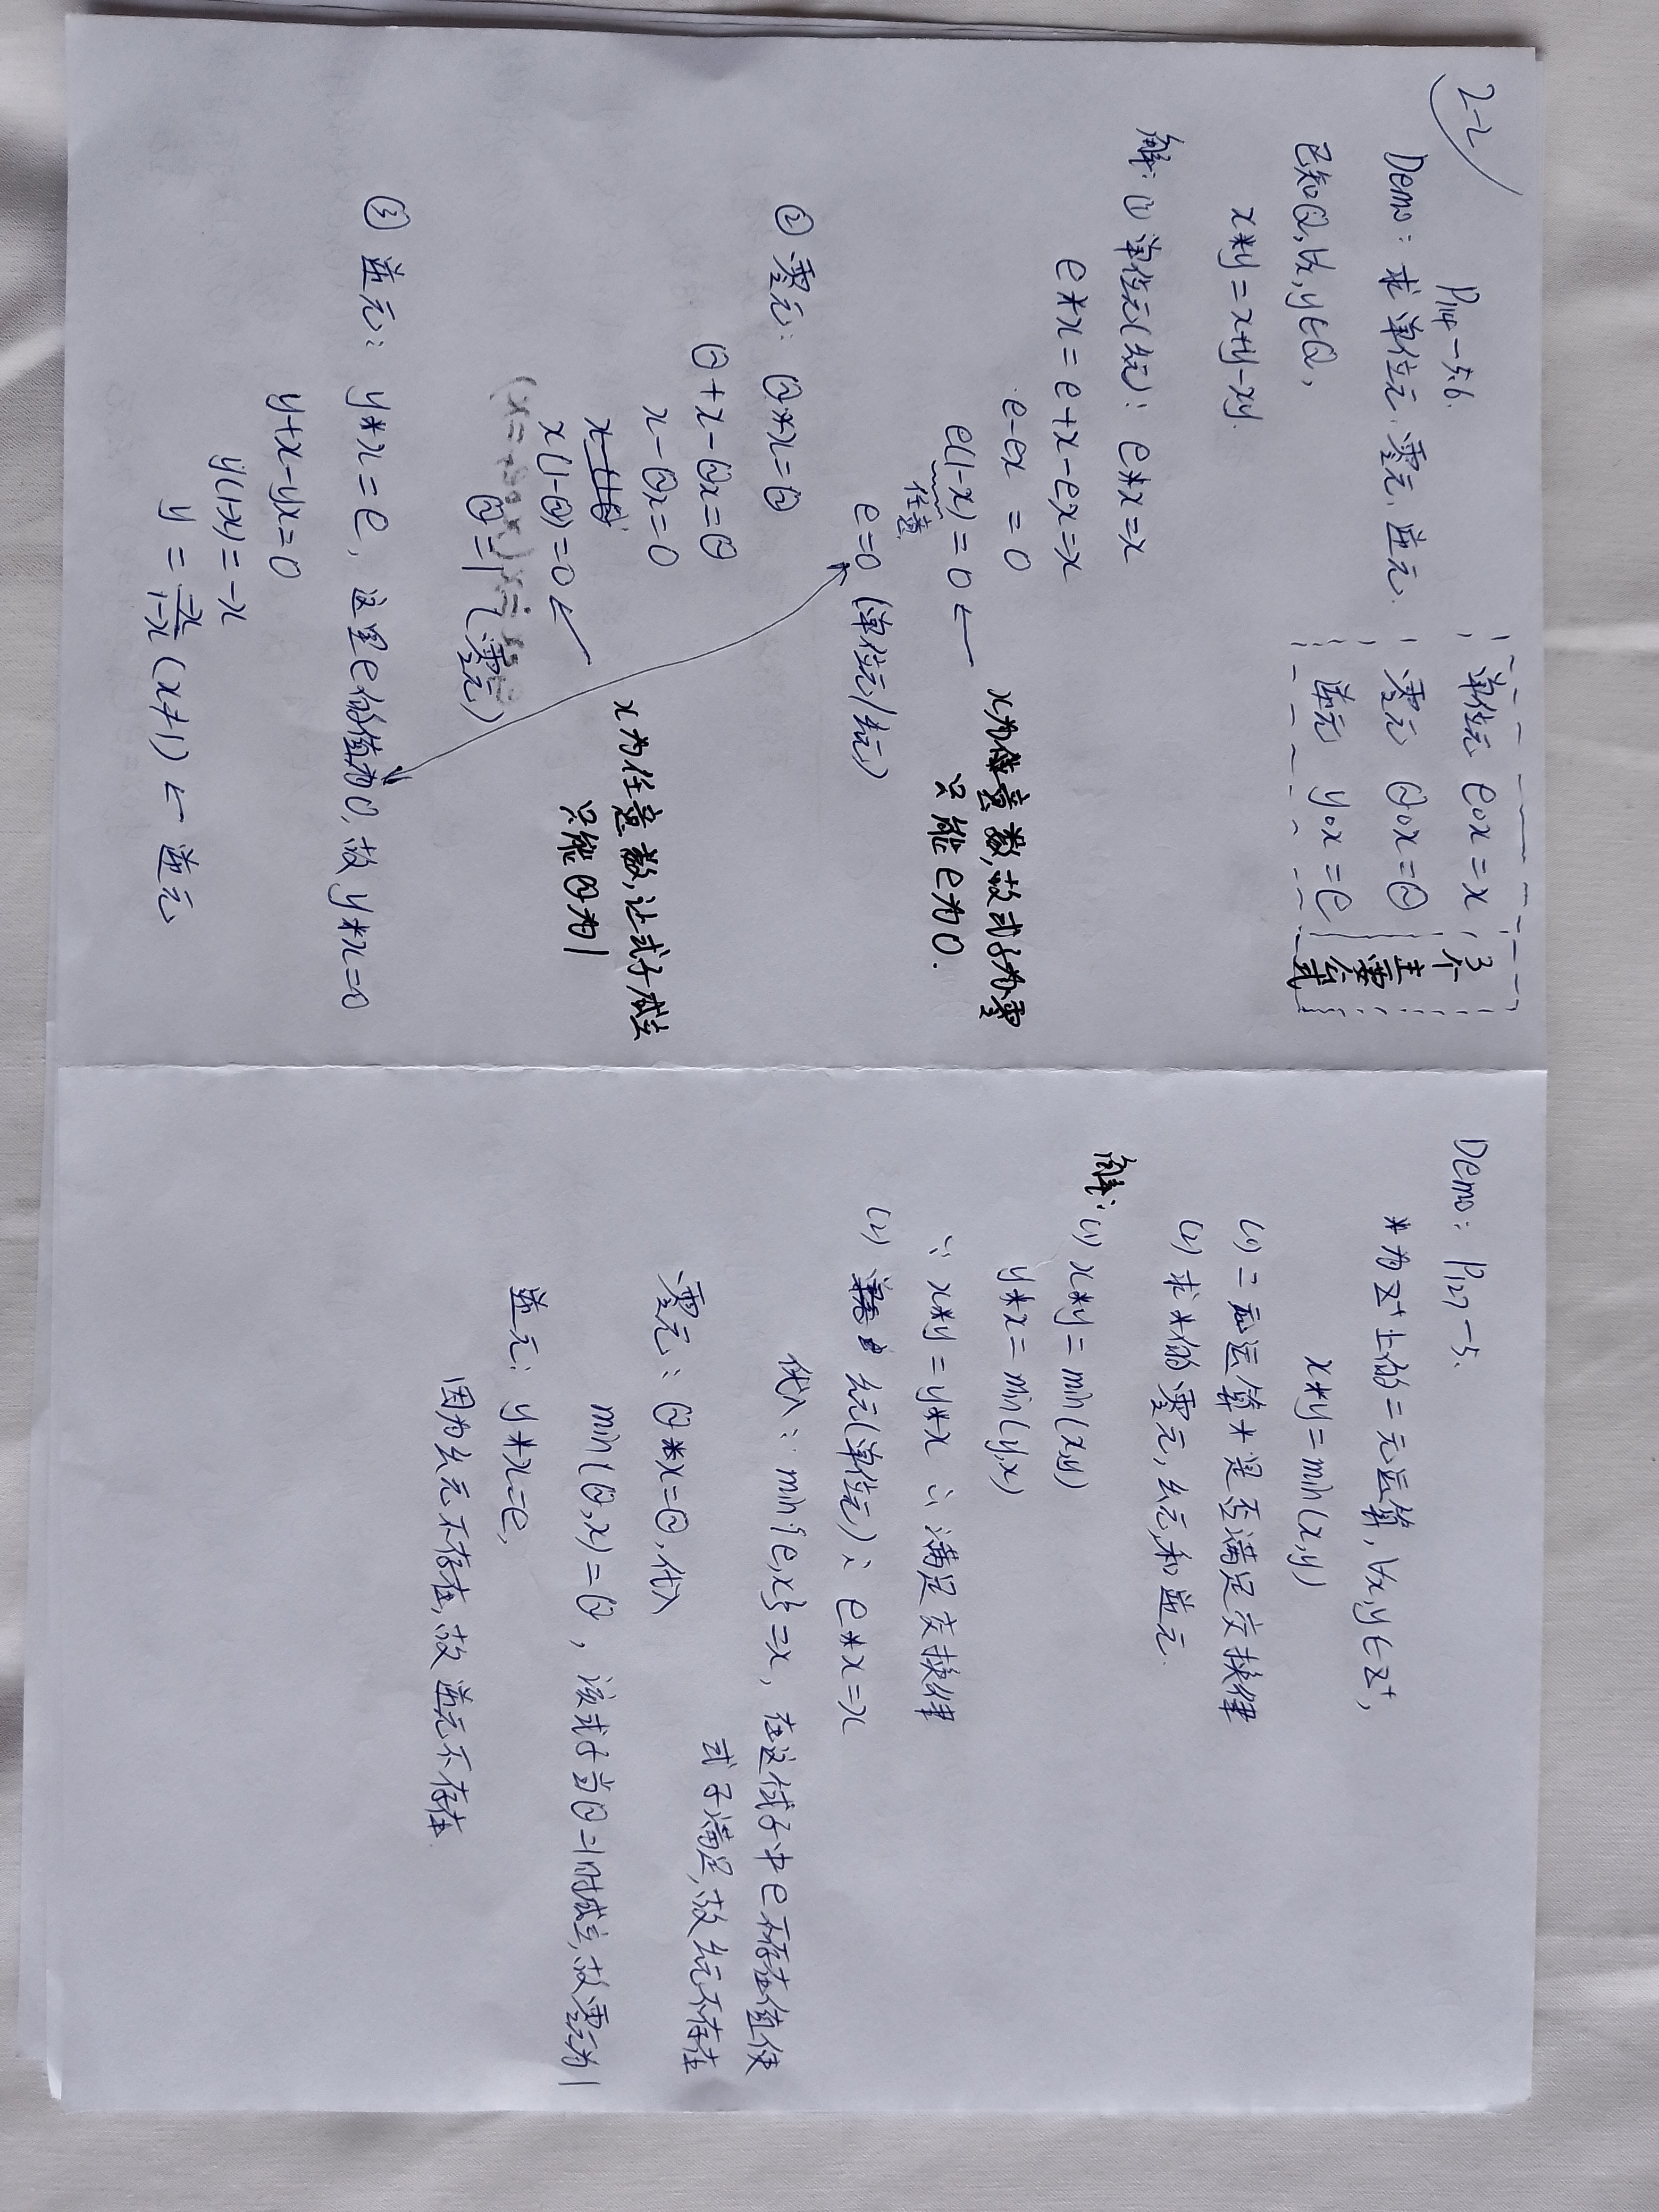 2-2
P114-5.6.
Demo: 求单位元、零元、逆元.
单位元 e∘x=x
零元 θ∘x=θ
逆元 y∘x=e
3个主要公式
已知Q,∀x,y∈Q,
x*y=x+y-xy.
解: ① 单位元(幺元): e*x=x
e*x=e+x-ex=x
e-ex=0
e(1-x)=0 ← x为任意数,故式子为零
只能e为0.
任意
e=0 (单位元/幺元)
② 零元: θ*x=θ
θ+x-θx=θ
x-θx=0
x(1-θ)=0 ←
x为任意数,让式子成立
只能θ为1
θ=1 (零元)
③ 逆元: y*x=e, 这里e的值为0, 故 y*x=0
y+x-yx=0
y(1-x)=-x
y=-x/1-x (x≠1) ← 逆元
Demo: P127-5.
*为Z⁺上的二元运算,∀x,y∈Z⁺,
x*y=min(x,y)
(1) 二元运算*是否满足交换律
(2) 求*的零元,幺元,和逆元.
解: (1) x*y=min(x,y)
y*x=min(y,x)
∵ x*y=y*x ∴ 满足交换律
(2) 幺元(单位元): e*x=x
代入: min{e,x}=x, 在这个式子中e不存在值使
式子满足,故幺元不存在
零元: θ*x=θ,代入
min(θ,x)=θ, 该式子当θ=1时成立,故零元为1
逆元: y*x=e,
因为幺元不存在,故逆元不存在.